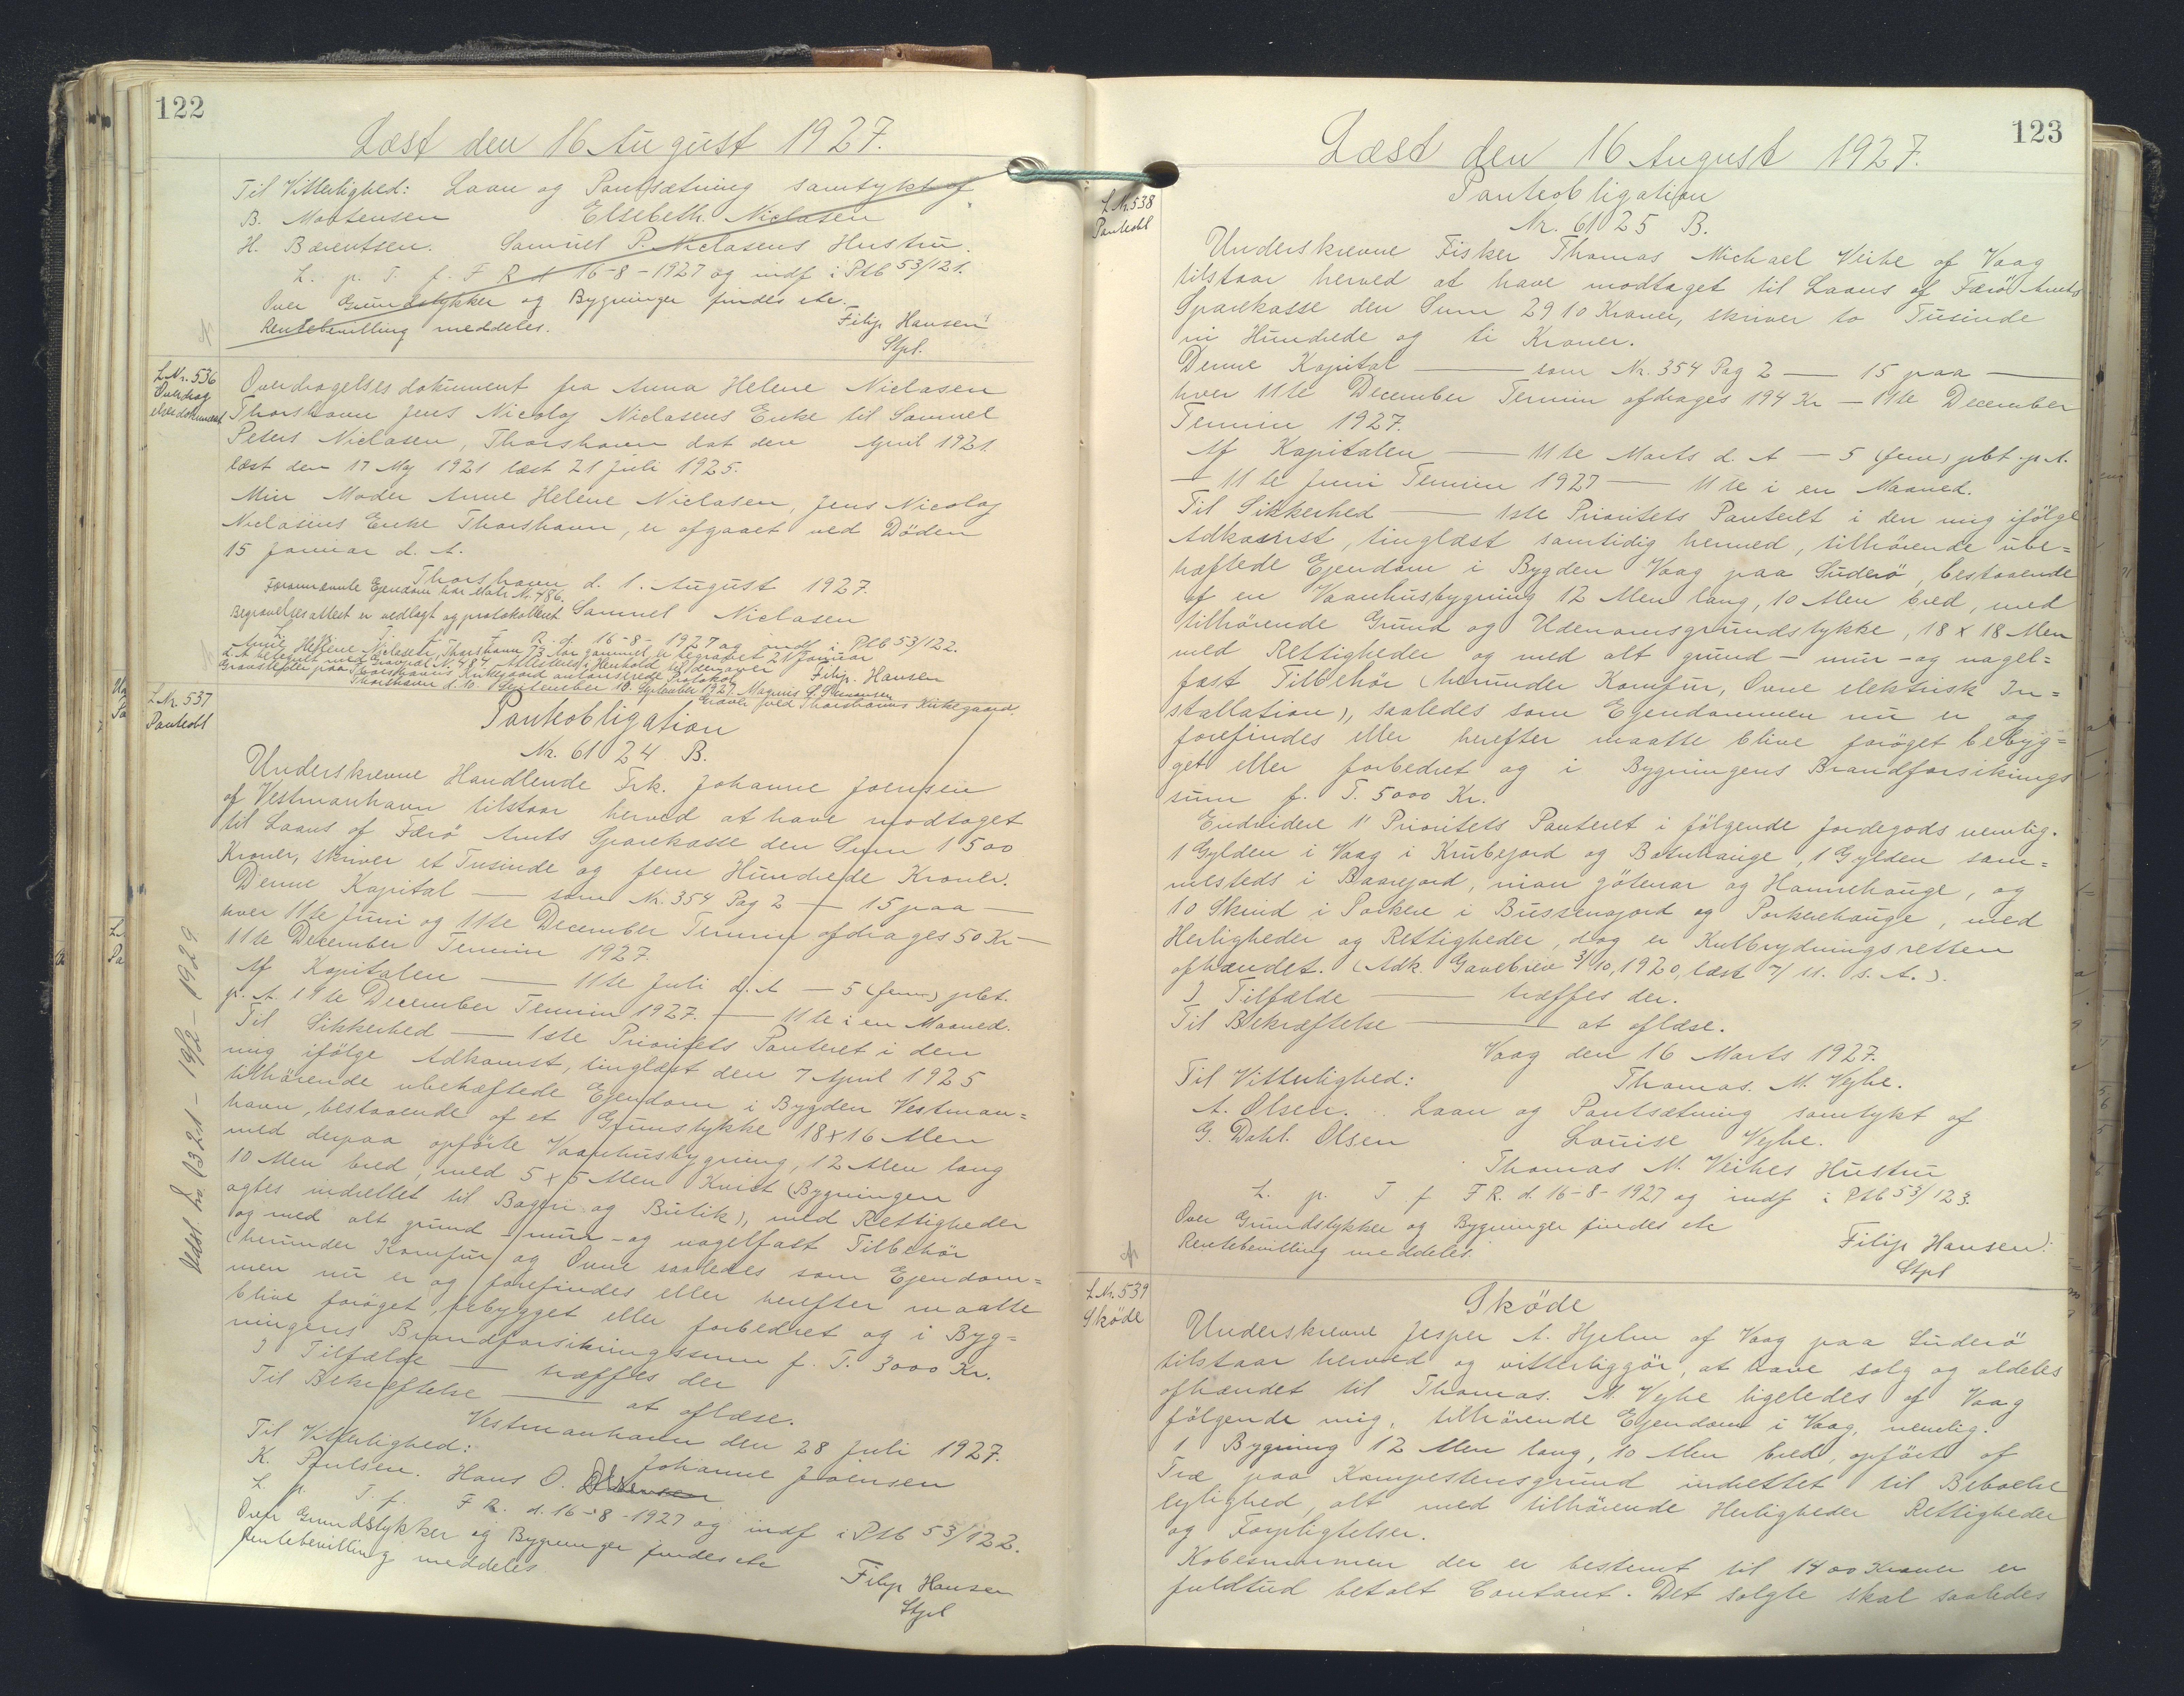 122
Læst den 16 August 1927.
Til Vitterlighed: Laan og Pantsætning samtykt af
B. Mortensen Elsebeth Niclasen
H. Bærentsen. Samuel P. Niclasens Hustru.
L. p. T. f. F R d 16-8-1927 og indf i Ptb 53/121.
Over Grundstykker og Bygninger findes etc.
Rentebevilling meddeles.
Filip Hansen
Stpl.
L.Nr. 536
Overdrag
elsesdokument
Overdragelsesdokument fra Anna Helene Niclasen
Thorshavn Jens Nicolaj Niclasens Enke til Samuel
Peters Niclasen, Thorshavn dat den April 1921.
læst den 17 Maj 1921 læst 21 Juli 1925.
Min Moder Anne Helene Niclasen, Jens Nicolaj
Niclasens Enke Thorshavn, er afgaaet ved Döden
15 Januar d. A.
Thorshavn d. 1. August 1927.
Forannævnte Ejendom har Matr Nr. 486.
Samuel Niclasen
Begravelsesattest er vedlagt og protokolleret
L. T. F R. d. 16-8-1927 og indf i Ptb 53/122.
Anne Helene Niclasen, Thorshavn 73 Aar gammel er begravet 21 Januar
d. A. belagt med Gravmål Nr. 487. Attesteres i Henhold til den over
Gravsteder paa Thorshavns Kirkegaard autoriserede Protokol
Filip. Hansen
Thorshavn d. 10. September 1927. Magnus S.
Graver ved Thorshavns Kirkegaard.
L.Nr. 537
Panteobl
Panteobligation
Nr. 61024 B.
Underskrevne Handlende Frk. Johanne Joensen
af Vestmanhavn tilstaar herved at have modtaget
til Laans af Færö Amts Sparekasse den Sum 1500
Kroner, skriver et Tusinde og fem Hundrede Kroner.
Denne Kapital — som Nr. 354 Pag 2 — 15 paa —
hver 11te Juni og 11te December Termin afdrages 50 Kr —
11te December Termin 1927.
Af Kapitalen — 11te Juli d. A — 5 (fem) pCt.
p. A. 11te December Termin 1927. — 11te i en Maaned.
Til Sikkerhed — 1ste Prioritets Panteret i den
mig ifölge Adkomst, tinglæst den 7 April 1925
tilhörende ubehæftede Ejendom i Bygden Vestman=
havn, bestaaende af et Grunstykke 18x16 Alen
med derpaa opförte Vaanhusbygning, 12 Alen lang
10 Alen bred, med 5x5 Alen Kvist (Bygningen
agtes indrettet til Bageri og Butik), med Rettigheder
og med alt grund - mur - og nagelfast Tilbehör
(herunder Komfur og Ovne saaledes som Ejendom=
men nu er og forefindes eller herefter maatte
blive foröget, bebygget eller forbedret og i Byg=
ningens Brandforsikringssum f. T. 3000 Kr.
I Tilfælde — træffes der
Til Bekræftelse — at aflæse.
Vestmanhavn den 28 Juli 1927.
Til Vitterlighed:
Johanne Joensen
K. Poulsen. Hans O.
L. p. T. f. F R. d. 16-8-1927 og indf i Ptb 53/122.
Over Grundstykker og Bygninger findes etc
Rentebevilling meddeles
Filip Hansen
Stpl
123
Læst den 16 August 1927.
L.Nr. 538
Panteobl
Panteobligation
Nr. 61025 B.
Underskrevne Fisker Thomas Michael Veihe af Vaag
tilstaar herved at have modtaget til Laans af Færö Amts
Sparekasse den Sum 2910 Kroner, skriver to Tusinde
ni Hundrede og ti Kroner.
Denne Kapital — som Nr. 354 Pag 2 — 15 paa —
hver 11te December Termin afdrages 194 Kr — 11te December
Termin 1927.
Af Kapitalen — 11te Marts d. A — 5 (fem) pCt. p. A.
— 11te Juni Termin 1927 — 11te i en Maaned.
Til Sikkerhed — 1ste Prioritets Panteret i den mig ifölge
Adkomst, tinglæst samtidig hermed, tilhörende ube=
hæftede Ejendom i Bygden Vaag paa Suderö, bestaaende
af en Vaanhusbygning 12 Alen lang, 10 Alen bred, med
tilhörende Grund og Udenomsgrundstykke, 18 x 18 Alen
med Rettigheder og med alt grund - mur - og nagel=
fast Tilbehör (herunder Komfur, Ovne elektrisk In=
stallation), saaledes som Ejendommen nu er og
forefindes eller herefter maatte blive foröget bebyg=
get eller forbedret og i Bygningens Brandforsikrings
sum f. T. 5000 Kr.
Endvidere 1' Prioritets Panteret i fölgende Jordegods nemlig.
1 Gylden i Vaag i Krubejord og Botnhauge, 1 Gylden sam=
mesteds i Baarejord, nian götenar og Hannehauge, og
10 Skind i Porkere i Bussensjord og Porkerehauge, med
Herligheder og Rettigheder, dog er Kulbrydningsretten
afhændet. (Adk. Gavebrev 3/10, 1920, læst 7/11. s. A.).
I Tilfælde — træffes der.
Til Bekræftelse — at aflæse.
Vaag den 16 Marts 1927.
Til Vitterlighed:
Thomas. M. Vejhe.
A. Olsen. Laan og Pantsætning samtykt af
G. Dahl. Olsen Louise Vejhe.
Thomas M. Veihes Hustru
L. p. T f F R. d. 16-8-1927 og indf i Ptb 53/123.
Over Grundstykker og Bygninger findes etc
Rentebevilling meddeles.
Filip Hansen.
Stpl
L.Nr. 539
Sköde
Sköde
Underskrevne Jesper A. Hjelm af Vaag paa Suderö
tilstaar herved og vitterliggör, at have solg og aldeles
afhændet til Thomas. M. Vejhe ligeledes af Vaag
fölgende mig, tilhörende Ejendom i Vaag, nemlig.
1 Bygning 12 Alen lang, 10 Alen bred, opfört af
Træ paa Kampestensgrund indrettet til Beboelse
lejlighed, alt med tilhörende Herligheder Rettigheder
og Forpligtelser.
Kobesummen der er bestemt til 1400 Kroner er
fuldtud betalt Contant. Det solgte skal saaledes
Udsl. Lnr 321 - 19/2 - 1929